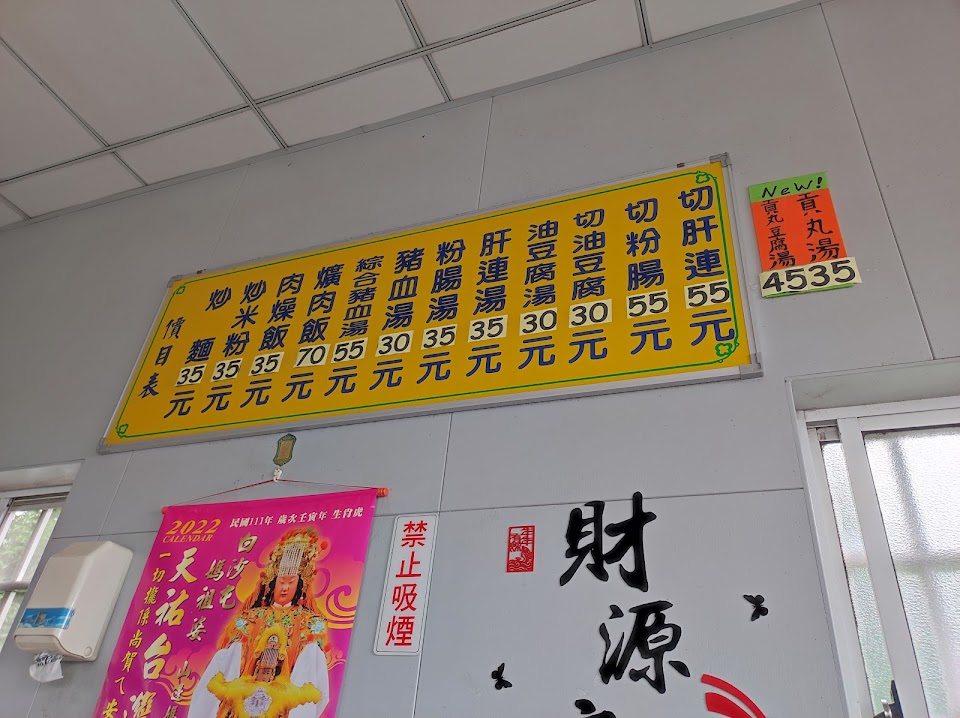 價目表
炒麵35元
炒米粉35元
肉燥飯35元
爌肉飯70元
綜合豬血湯55元
豬血湯30元
粉腸湯35元
肝連湯35元
油豆腐湯30元
切油豆腐30元
切粉腸55元
切肝連55元
New!
貢丸湯
35
貢丸豆腐湯
45
2022
CALENDAR
民國111年 歲次壬寅年 生肖虎
白沙屯
媽祖婆
天祐台灣
一切攏係尚賀て
禁止吸煙
財源